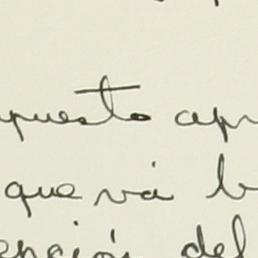 puesto apr
que vá b
ención del